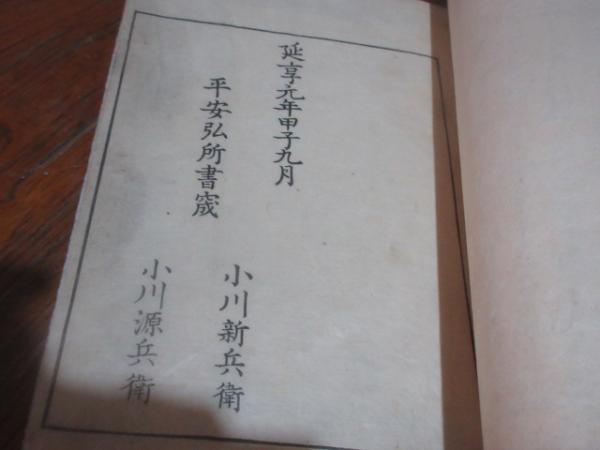 延享元年甲子九月
平安弘所書窽
小川新兵衛
小川源兵衛